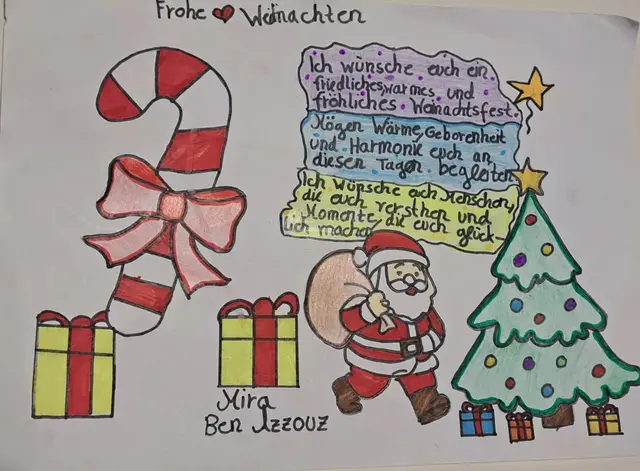 Frohe ❤ Weinachten
Ich wünsche euch ein
friedliches, warmes und
fröhliches Weinachtsfest.
Mögen Wärme, Geborenheit
und Harmonie euch an
diesen Tagen begleiten
Ich wünsche euch Menschen,
die euch versthen und
Momente, die euch glück-
lich machen
Mira
Ben Azzouz